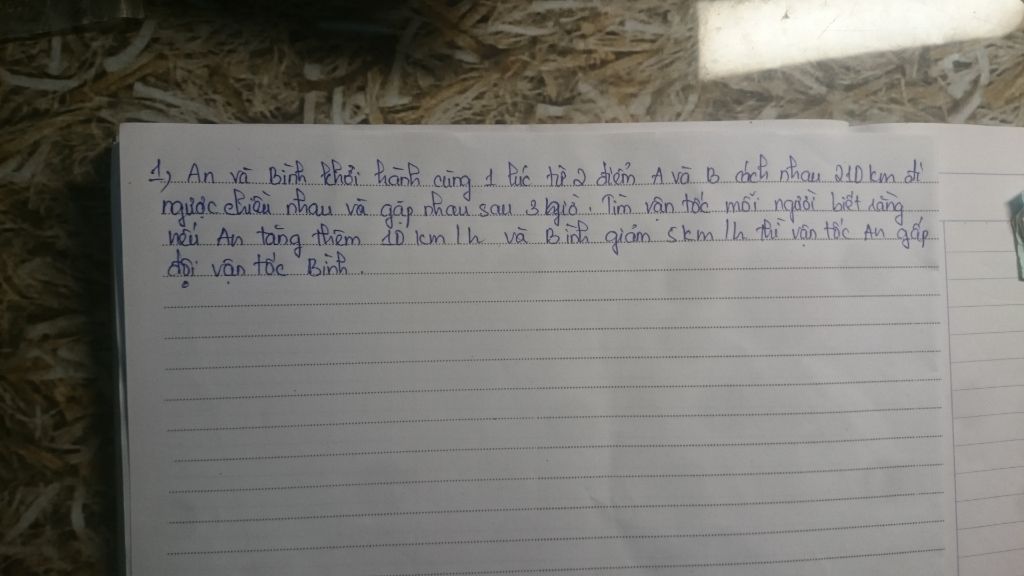 1, An và Bình khởi hành cùng 1 lúc từ 2 điểm A và B cách nhau 210 km đi
ngược chiều nhau và gặp nhau sau 3 giờ. Tìm vận tốc mỗi người biết rằng
nếu An tăng thêm 10 km/h và Bình giảm 5 km/h thì vận tốc An gấp
đội vận tốc Bình.